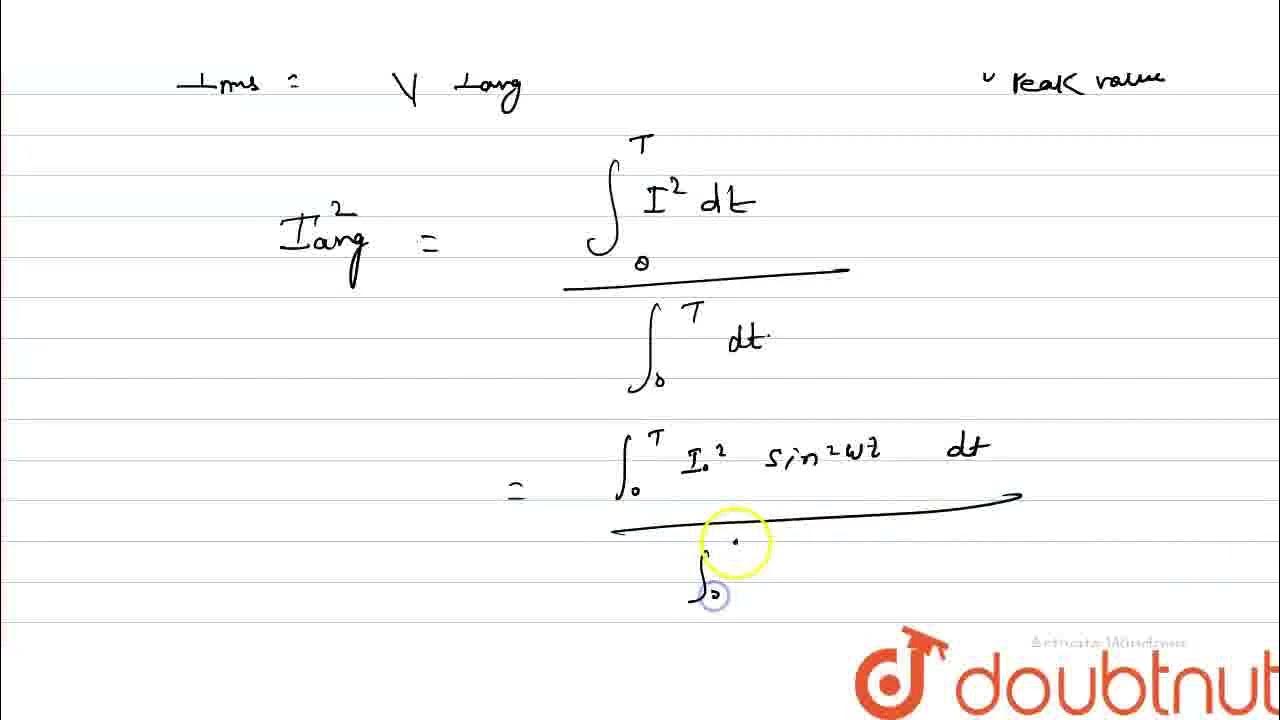 Irms = √ Iavg peak value
I²avg = ∫₀ᵀ I² dt
∫₀ᵀ dt
= ∫₀ᵀ I₀² sin²ωt dt
∫₀
Activate Windows
doubtnut